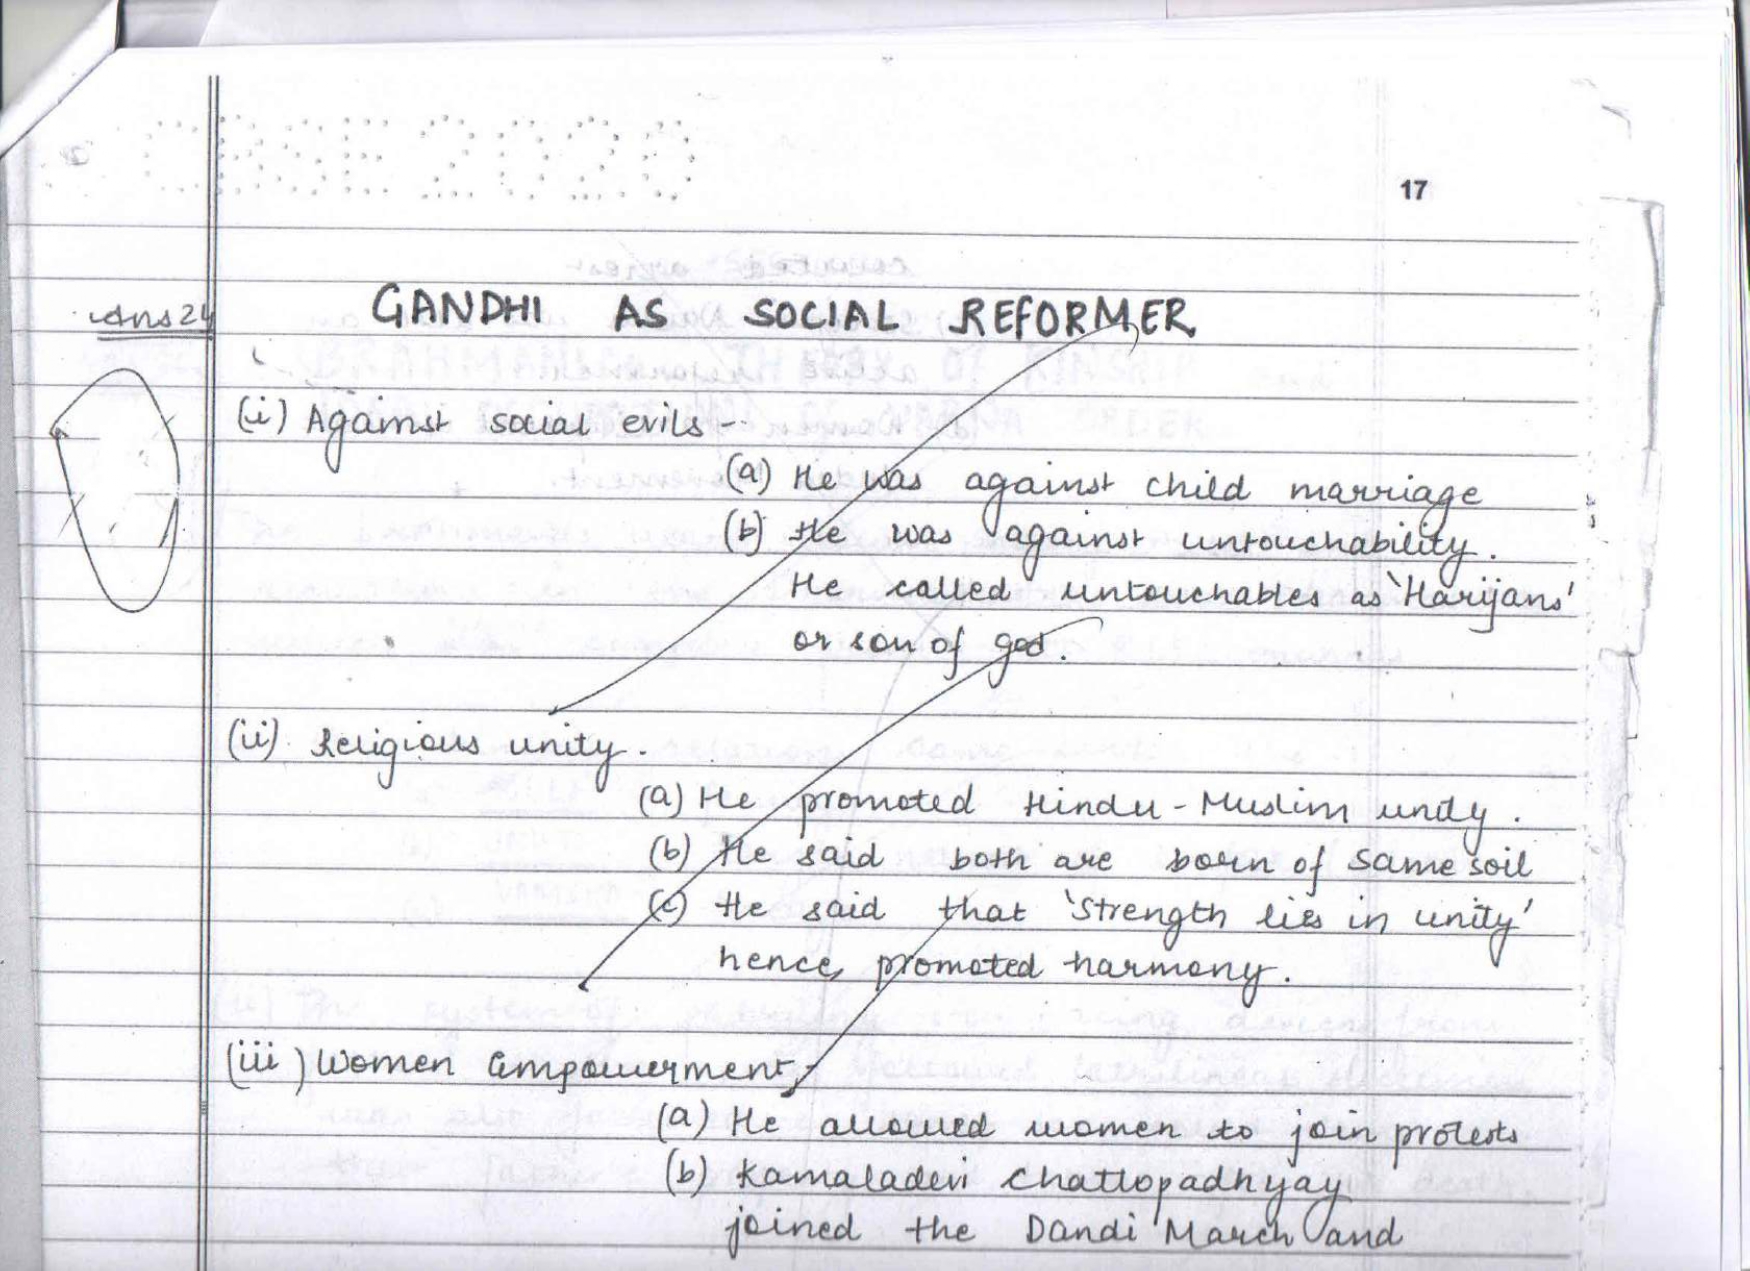 CBSE 2020
17
Ans 24 GANDHI AS SOCIAL REFORMER
(i) Against social evils -
(a) He was against child marriage
(b) He was against untouchability.
He called untouchables as 'Harijans'
or son of god.
(ii) Religious unity.
(a) He promoted Hindu-Muslim unity.
(b) He said both are born of same soil
(c) He said that 'strength lies in unity'
hence, promoted harmony.
(iii) Women empowerment,
(a) He allowed women to join protests
(b) Kamaladevi Chattopadhyay
joined the Dandi March and